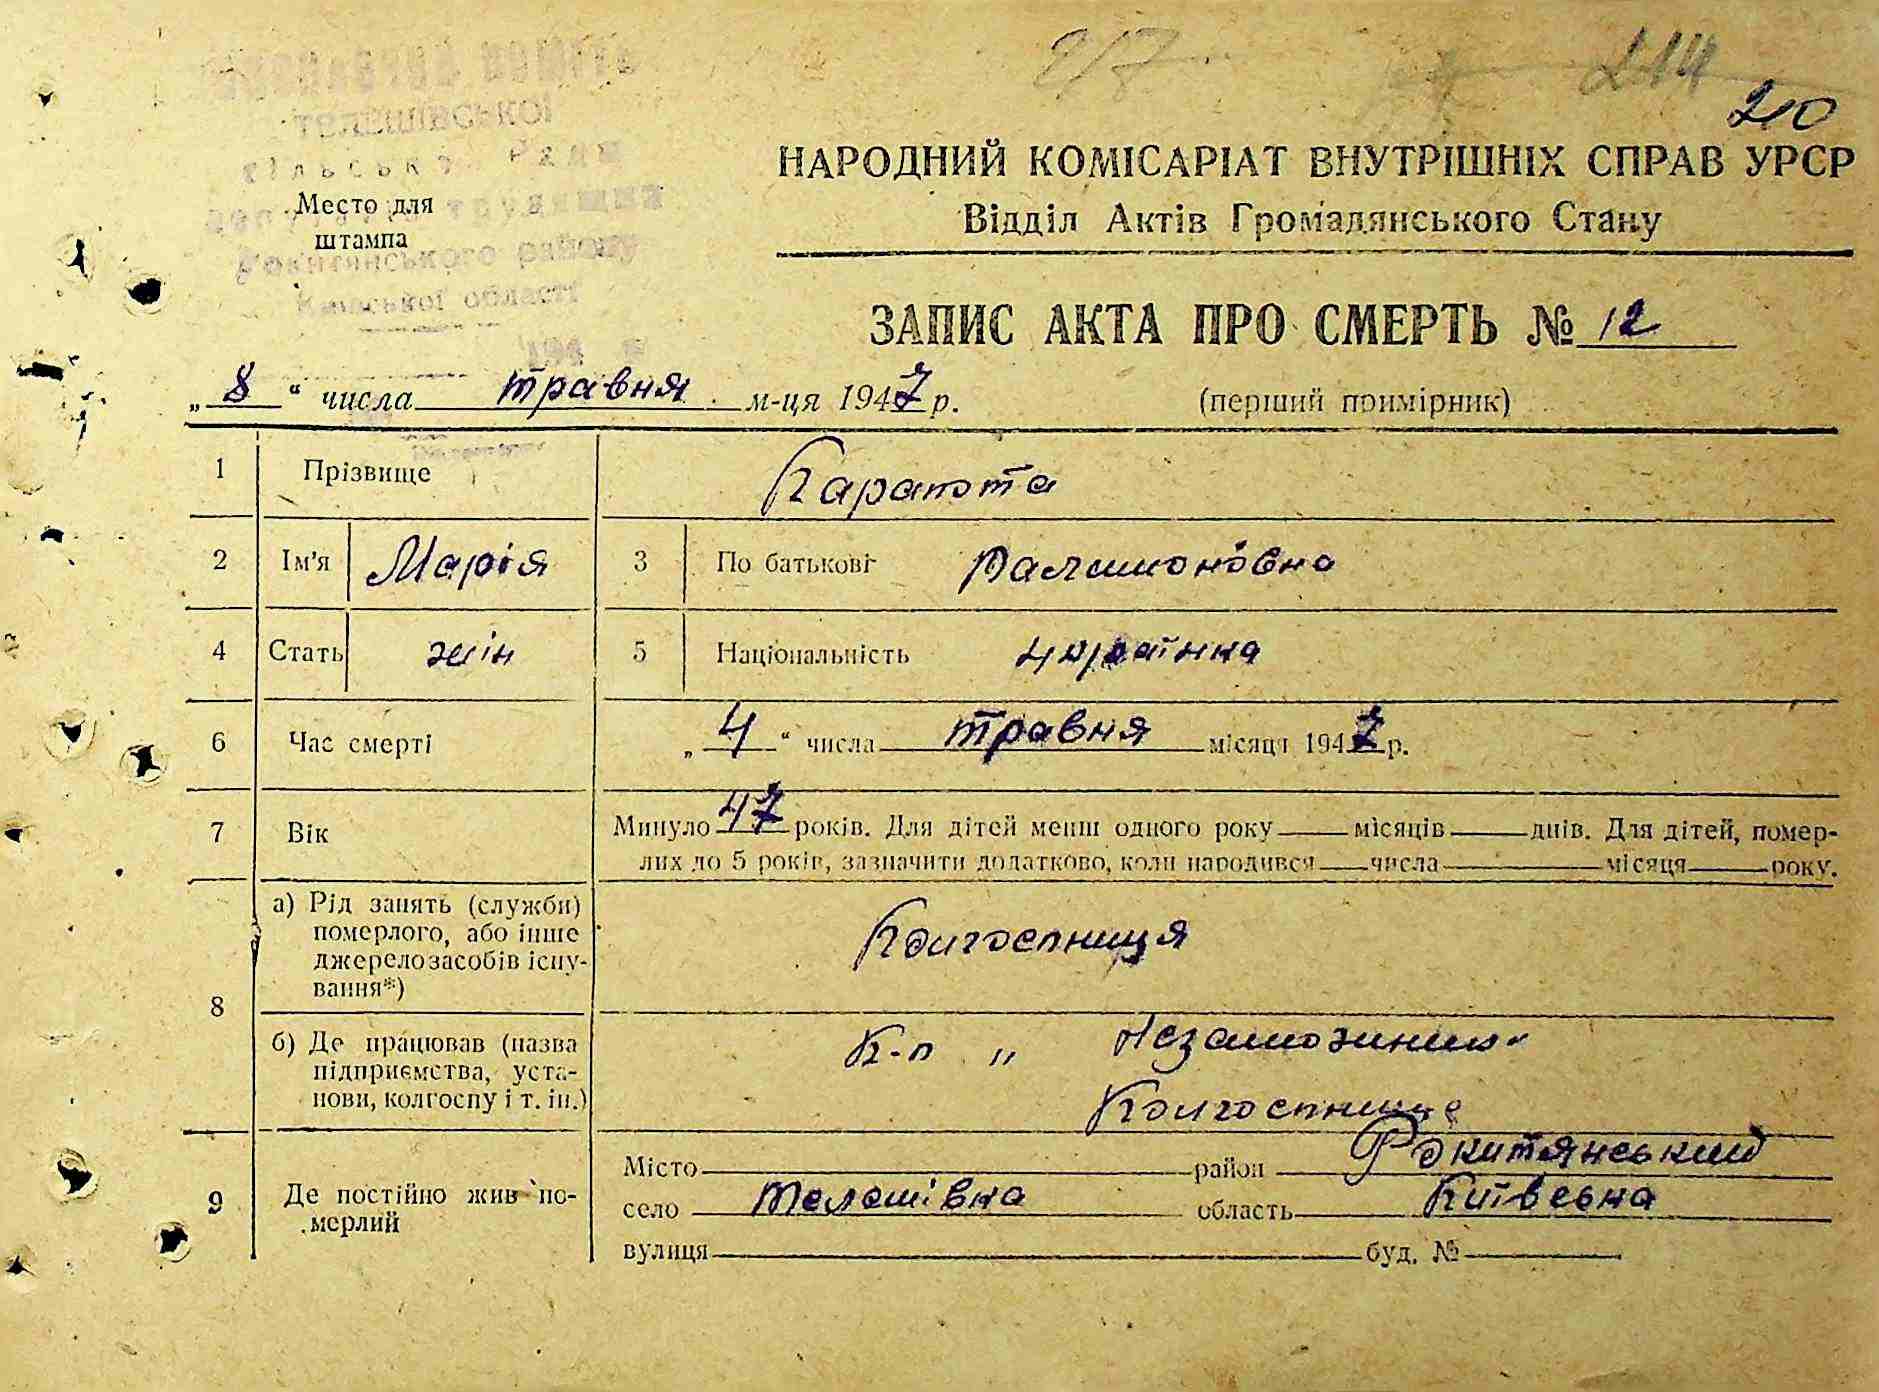 217 214
210
ТЕЛЕШІВСЬКОЇ
сільської Ради
депутатів трудящих
Рокитянського району
Київської області
194 р
Место для
штампа
НАРОДНИЙ КОМІСАРІАТ ВНУТРІШНІХ СПРАВ УРСР
Відділ Актів Громадянського Стану
ЗАПИС АКТА ПРО СМЕРТЬ № 12
„ 8 “ числа травня м-ця 1947 р. (перший примірник)
1 Прізвище Карапюта
2 Ім'я Марія 3 По батькові
4 Стать жін 5 Національність українка
6 Час смерті „ 4 “ числа травня місяця 1947 р.
7 Вік Минуло 47 років. Для дітей менш одного року місяців днів. Для дітей, помер-
лих до 5 років, зазначити додатково, коли народився числа місяця року.
8 а) Рід занять (служби)
померлого, або інше
джерело засобів існу-
вання*)
Колгоспниця
б) Де працював (назва
підприємства, уста-
нови, колгоспу і т. ін.)
К-п „ Незаможник“
Колгоспнице
9 Де постійно жив по-
мерлий
Місто район Рокитянський
село Телешівка область Київська
вулиця буд. №